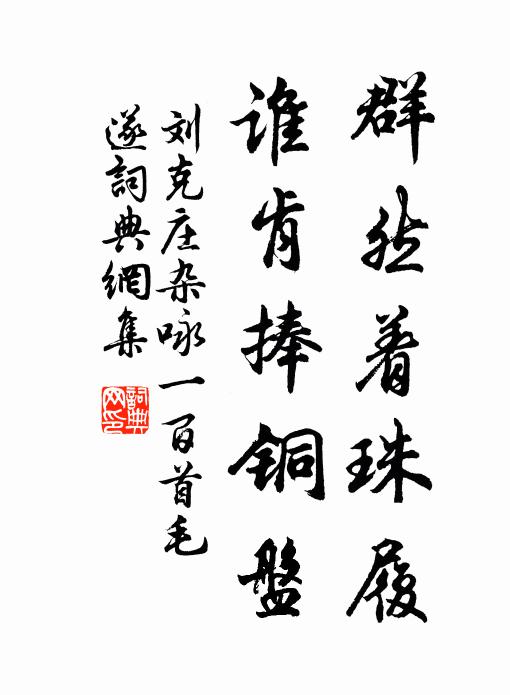 群然着珠履
谁肯捧铜盤
刘克庄杂咏一百首毛
遂詞典網集
詞典
网印